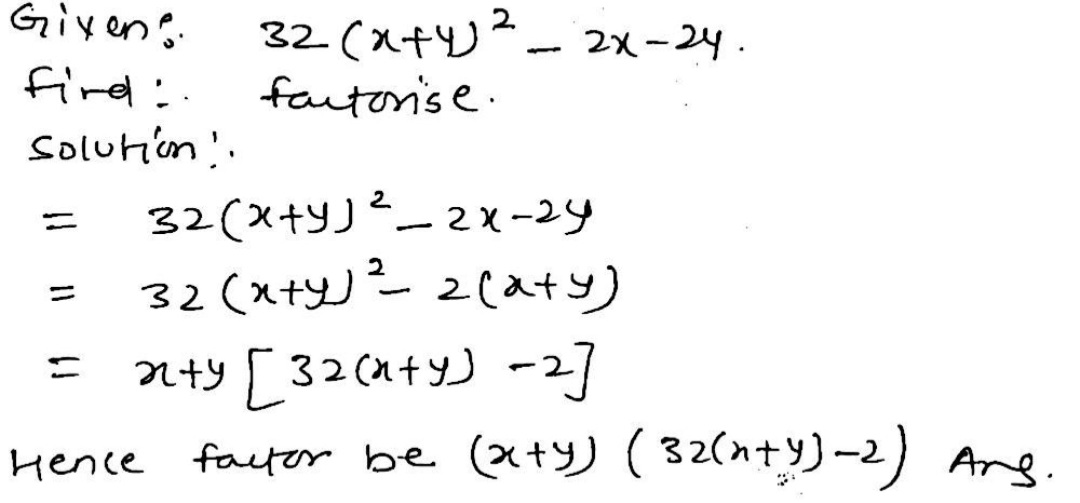 Given: 32(x+y)² - 2x-2y.
find: factorise.
Solution:
= 32(x+y)² - 2x-2y
= 32(x+y)² - 2(x+y)
= x+y [32(x+y) -2]
Hence factor be (x+y) (32(x+y)-2) Ans.